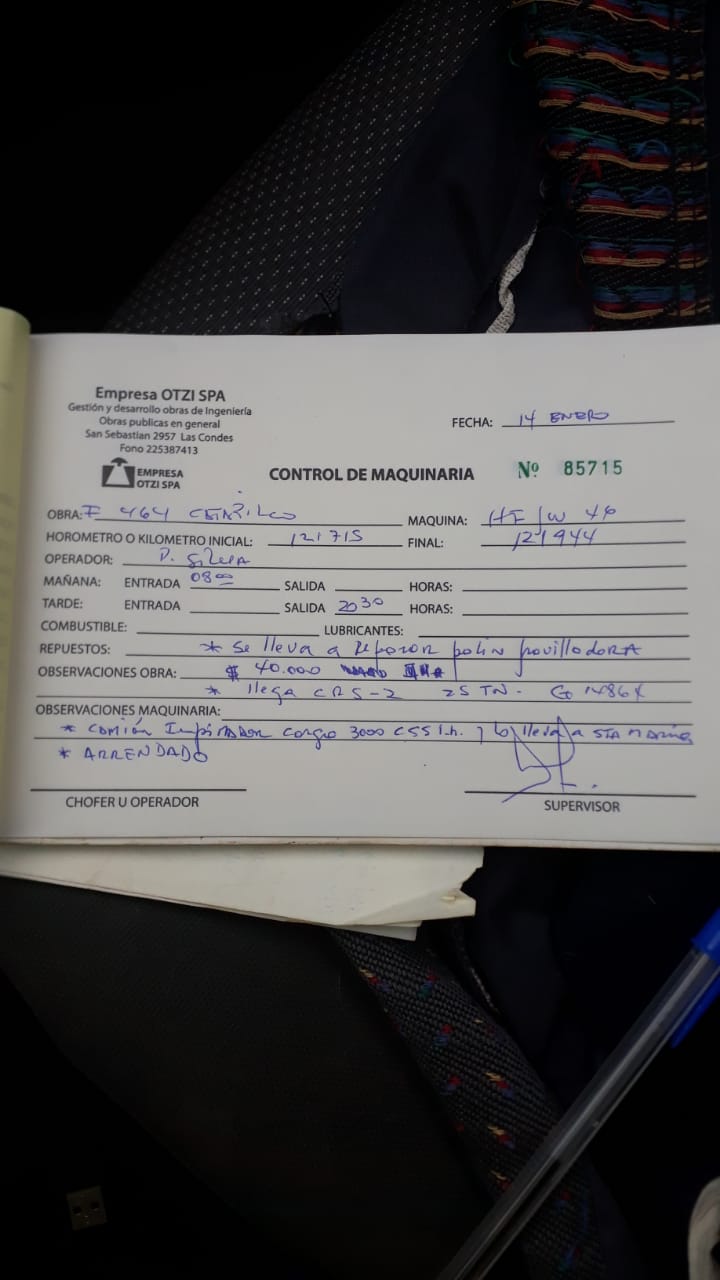 Empresa OTZI SPA
Gestión y desarrollo obras de Ingeniería
Obras publicas en general
San Sebastian 2957 Las Condes
Fono 225387413
EMPRESA
OTZI SPA
FECHA: 14 ENERO
CONTROL DE MAQUINARIA Nº 85715
OBRA: F 464 MAQUINA:
HOROMETRO O KILOMETRO INICIAL: 121715 FINAL: 121944
OPERADOR: P. Silva
MAÑANA: ENTRADA 08 00 SALIDA HORAS:
TARDE: ENTRADA SALIDA 20 30 HORAS:
COMBUSTIBLE: LUBRICANTES:
REPUESTOS: * Se lleva a polin
OBSERVACIONES OBRA: $ 40.000
* llega CRS-2 25 TN.
OBSERVACIONES MAQUINARIA:
* Camión 3000 CSS1.h. y lo lleva a
* ARRENDADO
CHOFER U OPERADOR
SUPERVISOR